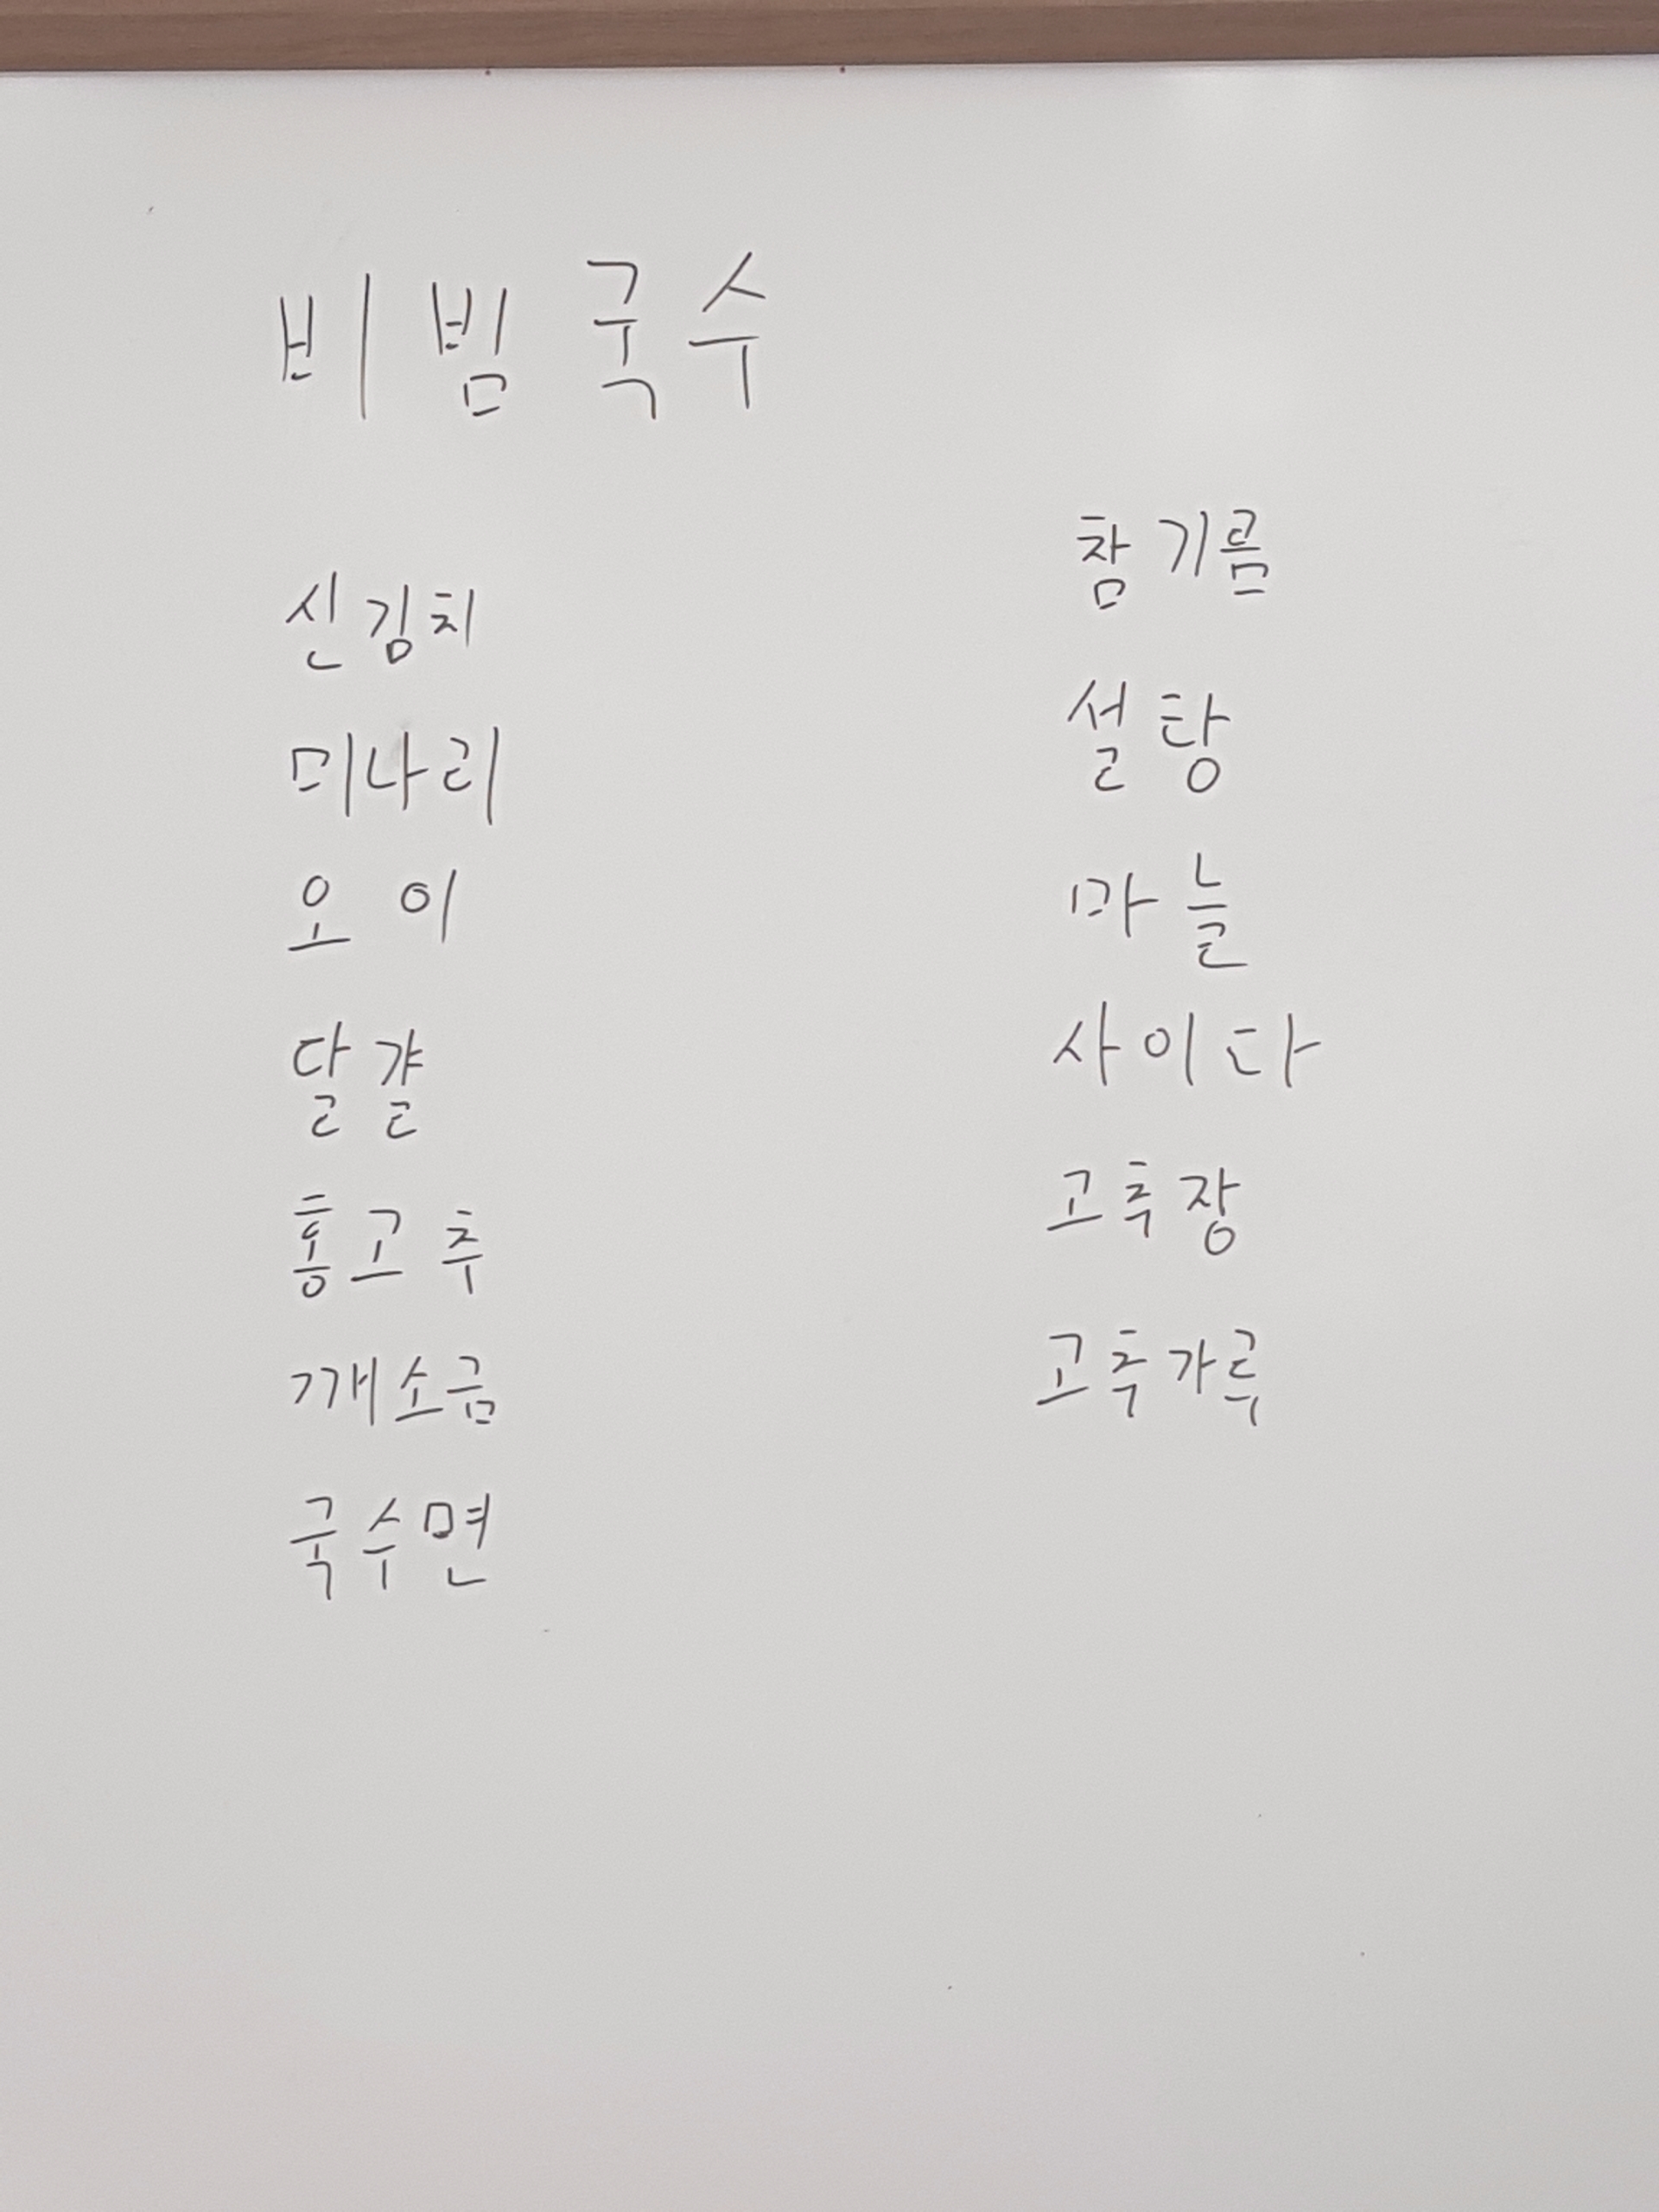 비빔국수
신김치
미나리
오이
달걀
홍고추
깨소금
국수면
참기름
설탕
마늘
사이다
고추장
고추가루